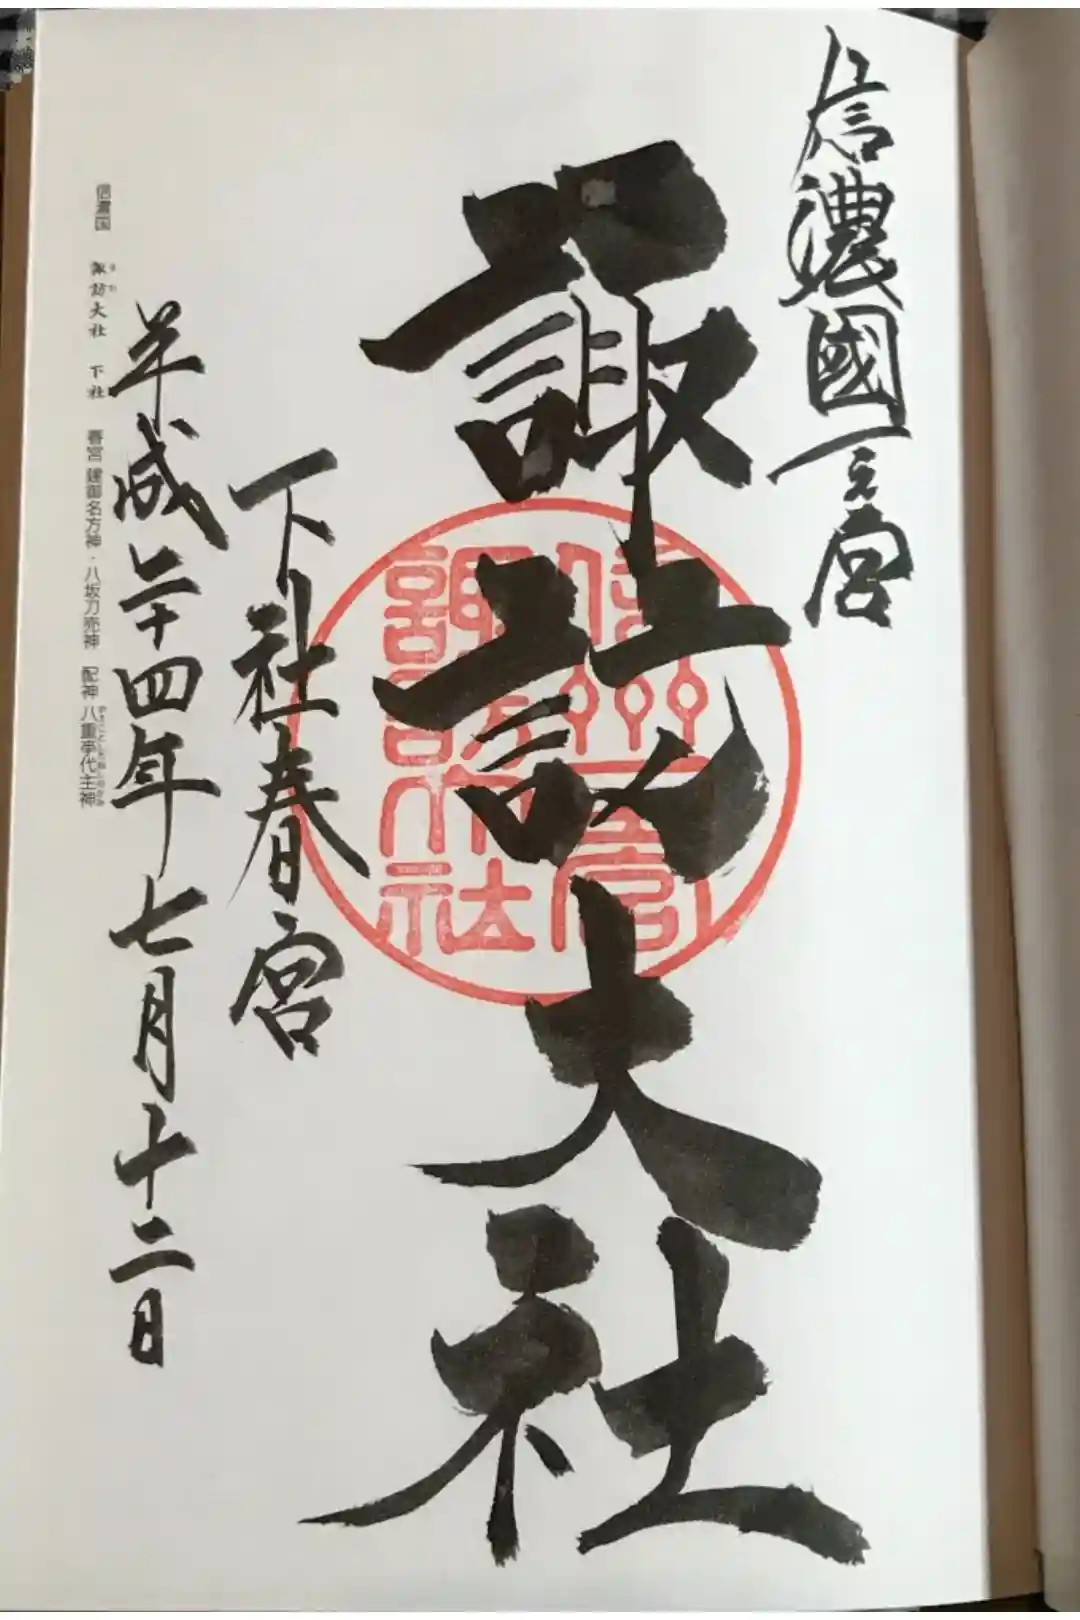 信濃國一之宮
諏訪大社
信州一之宮
諏訪大社
下社春宮
平成二十四年七月十二日
信濃国 諏訪大社 下社 春宮 建御名方神・八坂刀売神 配神 八重事代主神